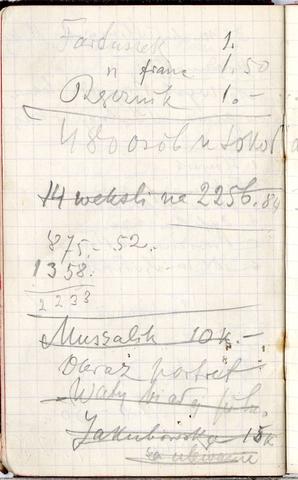 Fartuszek 1.
" frana 1.50
Ręcznik 1.-
480 osób u Sokoła
14 weksli na 2256.84
875.- 52.
1358.
2233
Muszalik 10 k.-
Obraz portret
Wały
Jakubowska 15k